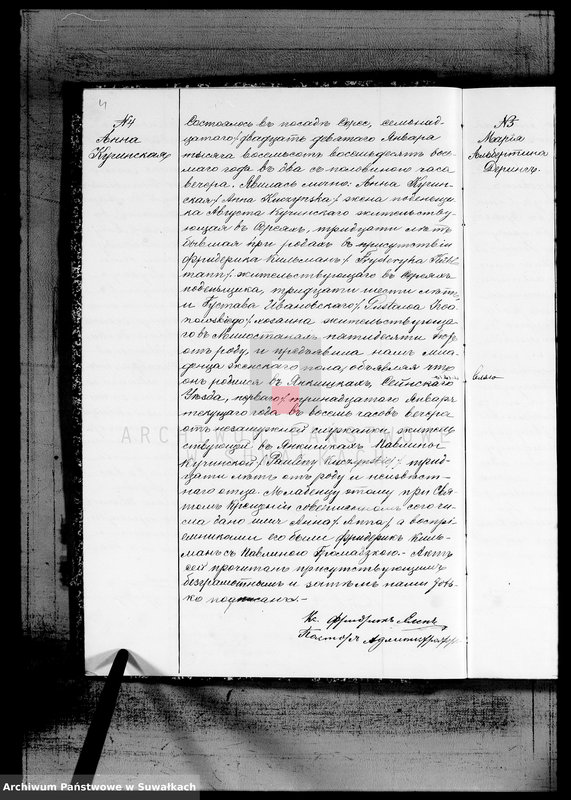 4
№4
Анна
Кучинская
Состоялось въ посадѣ Серее, семьнад-
цатаго/двадцать девятаго Января
тысяча восемьсотъ восемьдесятъ вось-
маго года въ два съ половиною часа
вечера. Явилась лично: Анна Кучин-
ская /Anna Kuczyńska/ жена поденьщи-
ка Августа Кучинскаго жительству-
ющая въ Сереяхъ, тридцати лѣтъ
бывшая при родахъ въ присутствіи
Фридерика Кильмана /Fryderyka Kill-
mann/ жительствующаго въ Сереяхъ
поденьщика, тридцати шести лѣтъ,
и Густава Ивановскаго /Gustawa Iwa-
nowskiego/ хозяина жительствующа-
го въ пятидесяти
отъ роду, и предъявила намъ мла-
денца женскаго пола, объявляя что
онъ родился въ Янкишкахъ, Сейнскаго
Уѣзда, перваго/тринадцатаго Января
текущаго года въ восемь часовъ вечера
отъ незамужней служанки житель-
ствующей въ Янкишкахъ Павлины
Кучинской /Pauliny Kuczyńskiej/ трид-
цати лѣтъ отъ роду и неизвѣст-
наго отца. Младенцу этому при Свя-
томъ Крещеніи совершенномъ сего чи-
сла дано имя Анна /Anna/, а воспрі-
емниками его были Фридерикъ Киль-
манъ съ Павлиною. Актъ
сей прочитанъ присутствующимъ
безграмотнымъ и затѣмъ нами толь-
ко подписанъ.-
Кс. Фридрикъ
Пасторъ Администраторъ
№5
Марія
Альбертина